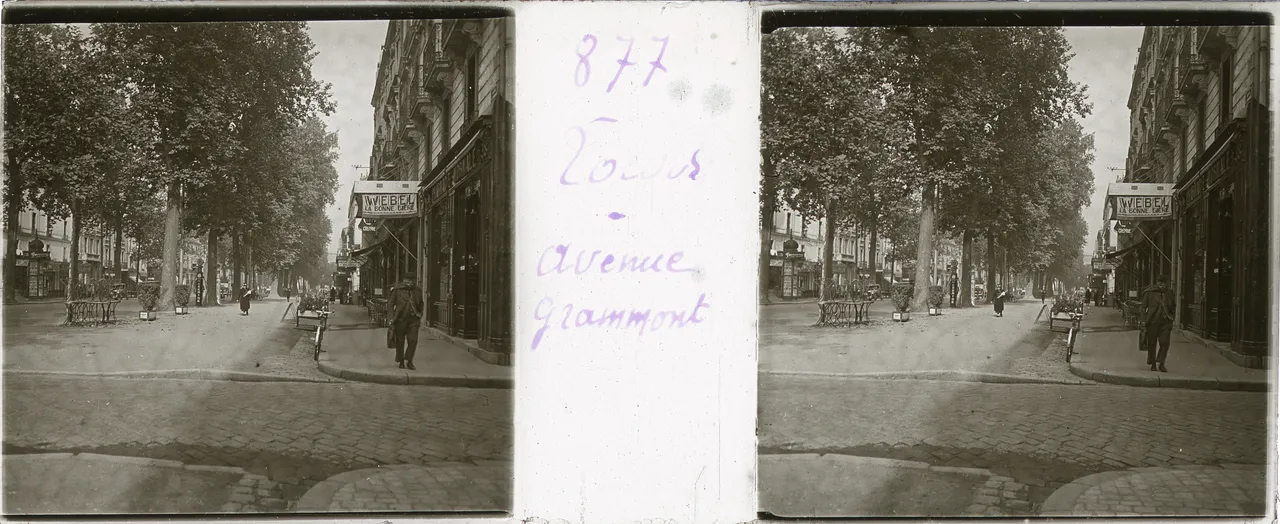 877
Tours
-
avenue
grammont
WEBEL
LA BONNE BIÈRE
WEBEL
LA BONNE BIÈRE